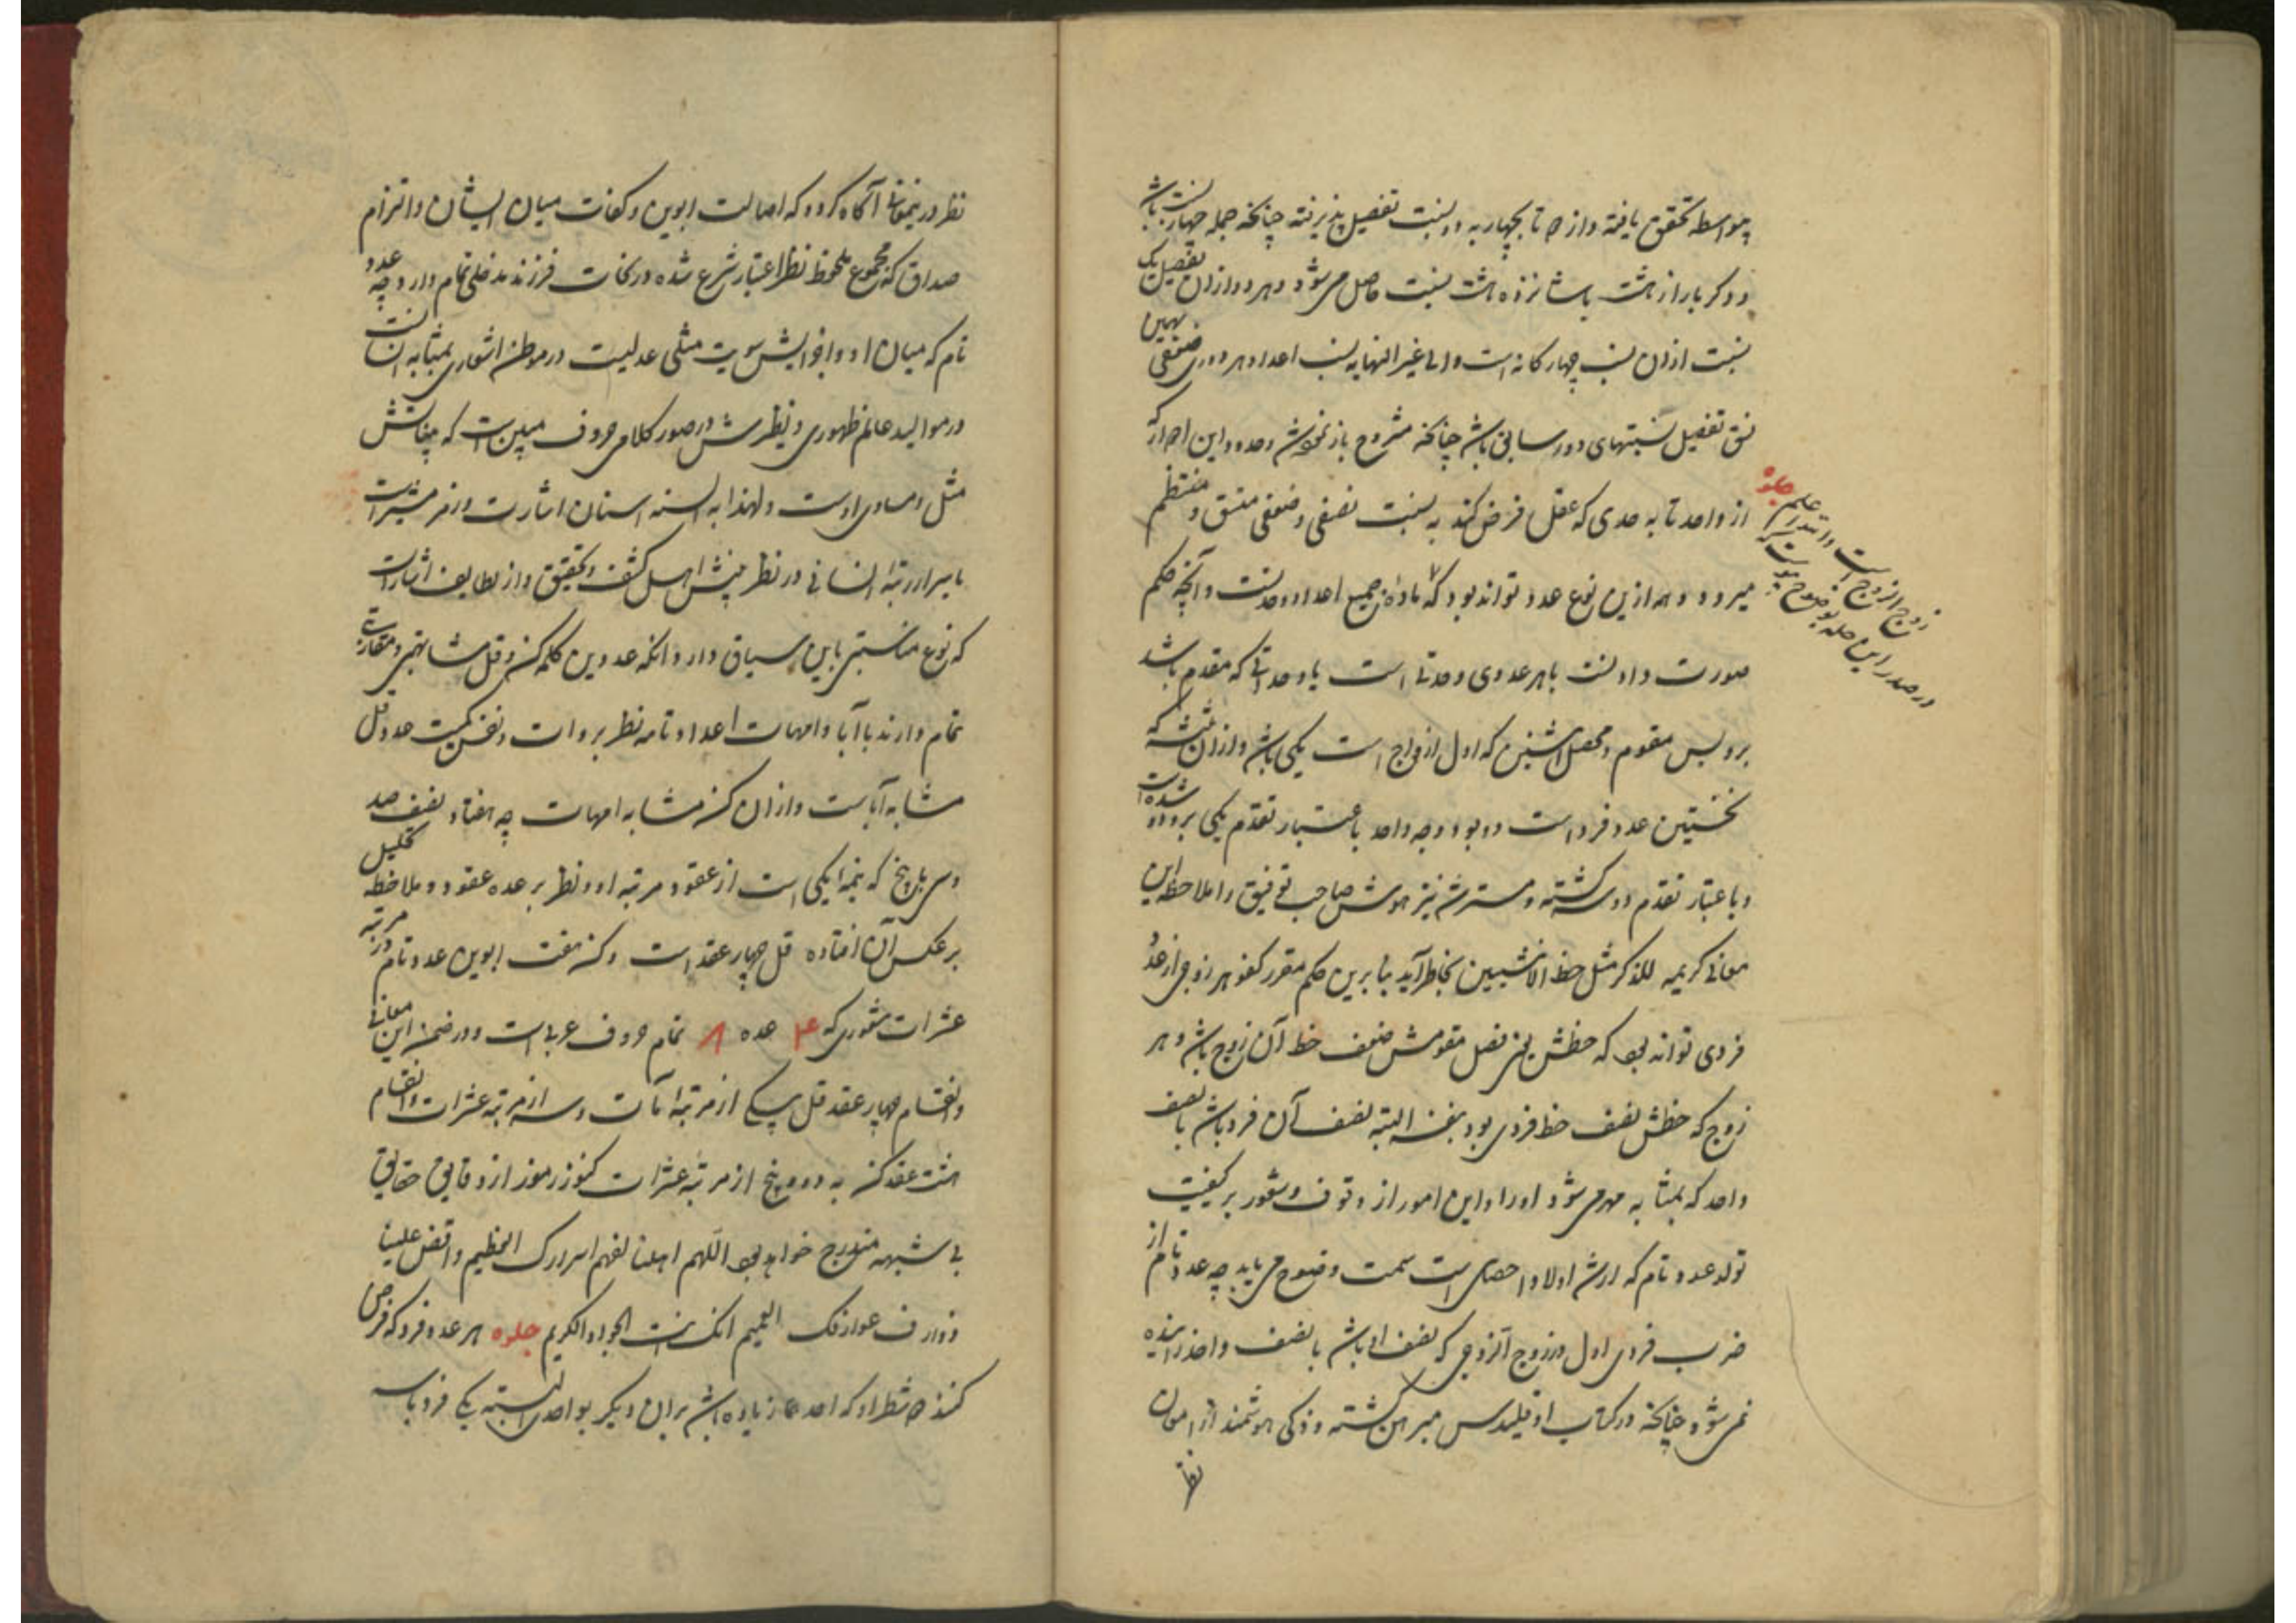 بواسطه تحقق یافته و از ۲ تا بچهار به دو نسبت تفصیل پذیرفته چنانچه جمله چهار نسبت باشد
و دکر بار از هشت تا شانزده هشت نسبت حاصل می‌شود و هر دو از آن تفصیل یک
نسبت از ان نسب چهارکانه است و الی غیر النهایه نسب اعداد هر دوری ضعفی بهمین
نسق تفصیل نسبتهای دور سابق باشد چنانکه مشروح باز نموده شد و حدود این احراز که
از واحد تا به حدی که عقل فرض کند به نسبت نصفی و ضعفی متسق و منتظم
میرود و همه ازین نوع عدد تواند بود که ماده جمیع اعداد وحدتست و آنچه حکم
صورت دارد نسبت با هر عددی وحدتی است یا وحداتی که مقدم باشد
برو پس مقوم و محصل اثنین که اول ازواج است یکی باشد و از آن ثلثه که
نخستین عدد فرد است دو بود و چه واحد باعتبار تقدم یکی برو دو شده است
و باعتبار تقدم دو سه کشته و مسترشد تیز هوش صاحب توفیق را ملاحظه این
معانی کریمه للذکر مثل حظ الانثیین بخاطر آید بنا برین حکم مقرر کفو هر زوجی از عدد
فردی تواند بود که حظش یعنی فصل مقومش ضعف حظ آن زوج باشد و هر
زوج که حظش نصف حظ فردی بود بنفسه البته نصف آن فرد باشد با نصف
واحد که بمثابه مهر می‌شود او را و این امور از وقوف و شعور بر کیفیت
تولد عدد تام که ارشد اولاد احصای است سمت وضوح می‌یابد چه عدد تام از
ضرب فردی اول در زوج آنزوجی که نصف او باشد با نصف واحد زاییده
نمی‌شود چنانکه در کتاب اوقلیدس مبرهن کشته و ذکی هوشمند از امعان
نظر
جلوه
زوج الزوج است و ابتدا از علم
در صدر این جلوه بوضوح پیوست که
نظر در ینمعانی آکاه کردد که اصالت ابوین و کفائت میان ایشان و التزام
صداق که مجموع ملحوظ نظر اعتبار شرع شده در نجابت فرزند مدخلی تمام دارد و چه عدد
تام که میان او و اجزایش سویت مثلی عدلیت در موطن اشعاری بمثابه انسانست
در موالید عالم ظهوری و نظیرش در صور کلامی حروف مبین است که بیناتش
مثل و مساوی اوست و لهذا به السنه السنان اشارت و رمز مشیر است
باسرار رتبه انسانی در نظر بینش اهل کشف و تحقیق و از لطایف اشارات
که نوع مناسبتی باین سیاق دارد آنکه عددین کلمه کن و قل مشابهتی و مقاربتی
تمام دارند با آبا و امهات اعداد تامه نظر بر ذات و نفس کمیت عدد قل
مشابه آباست و از ان کن مشابه امهات چه هفتاد نصف صد
و سی با پنج که نیمه یکی است از عقود مرتبه او و نظر بر عده عقود و ملاحظه تحلیل
بر عکس آن افتاده قل چهار عقد است و کن هفت ابوین عدد تام در مرتبه
عشرات شعوری که ۴ عده ۸ تمام حروف عربی است و در ضمن این معانی
و انقسام چهار عقد قل بیکی از مرتبه مآت و سه از مرتبه عشرات و انقسام
هشت عقد کن به دو و پنج از مرتبه عشرات کنوز رموز از دقایق حقایق
بی شبهه مندرج خواهد بود اللهم اهلنا لفهم اسرارک العظیم و افض علینا
ذوارف عوارفک العمیم انک انت الجواد الکریم جلوه هر عدد فرد که فرض
کنند دو شطر او که احدهما زیاده باشد بر ان دیگر بواحدی البته یکی فرد باشد